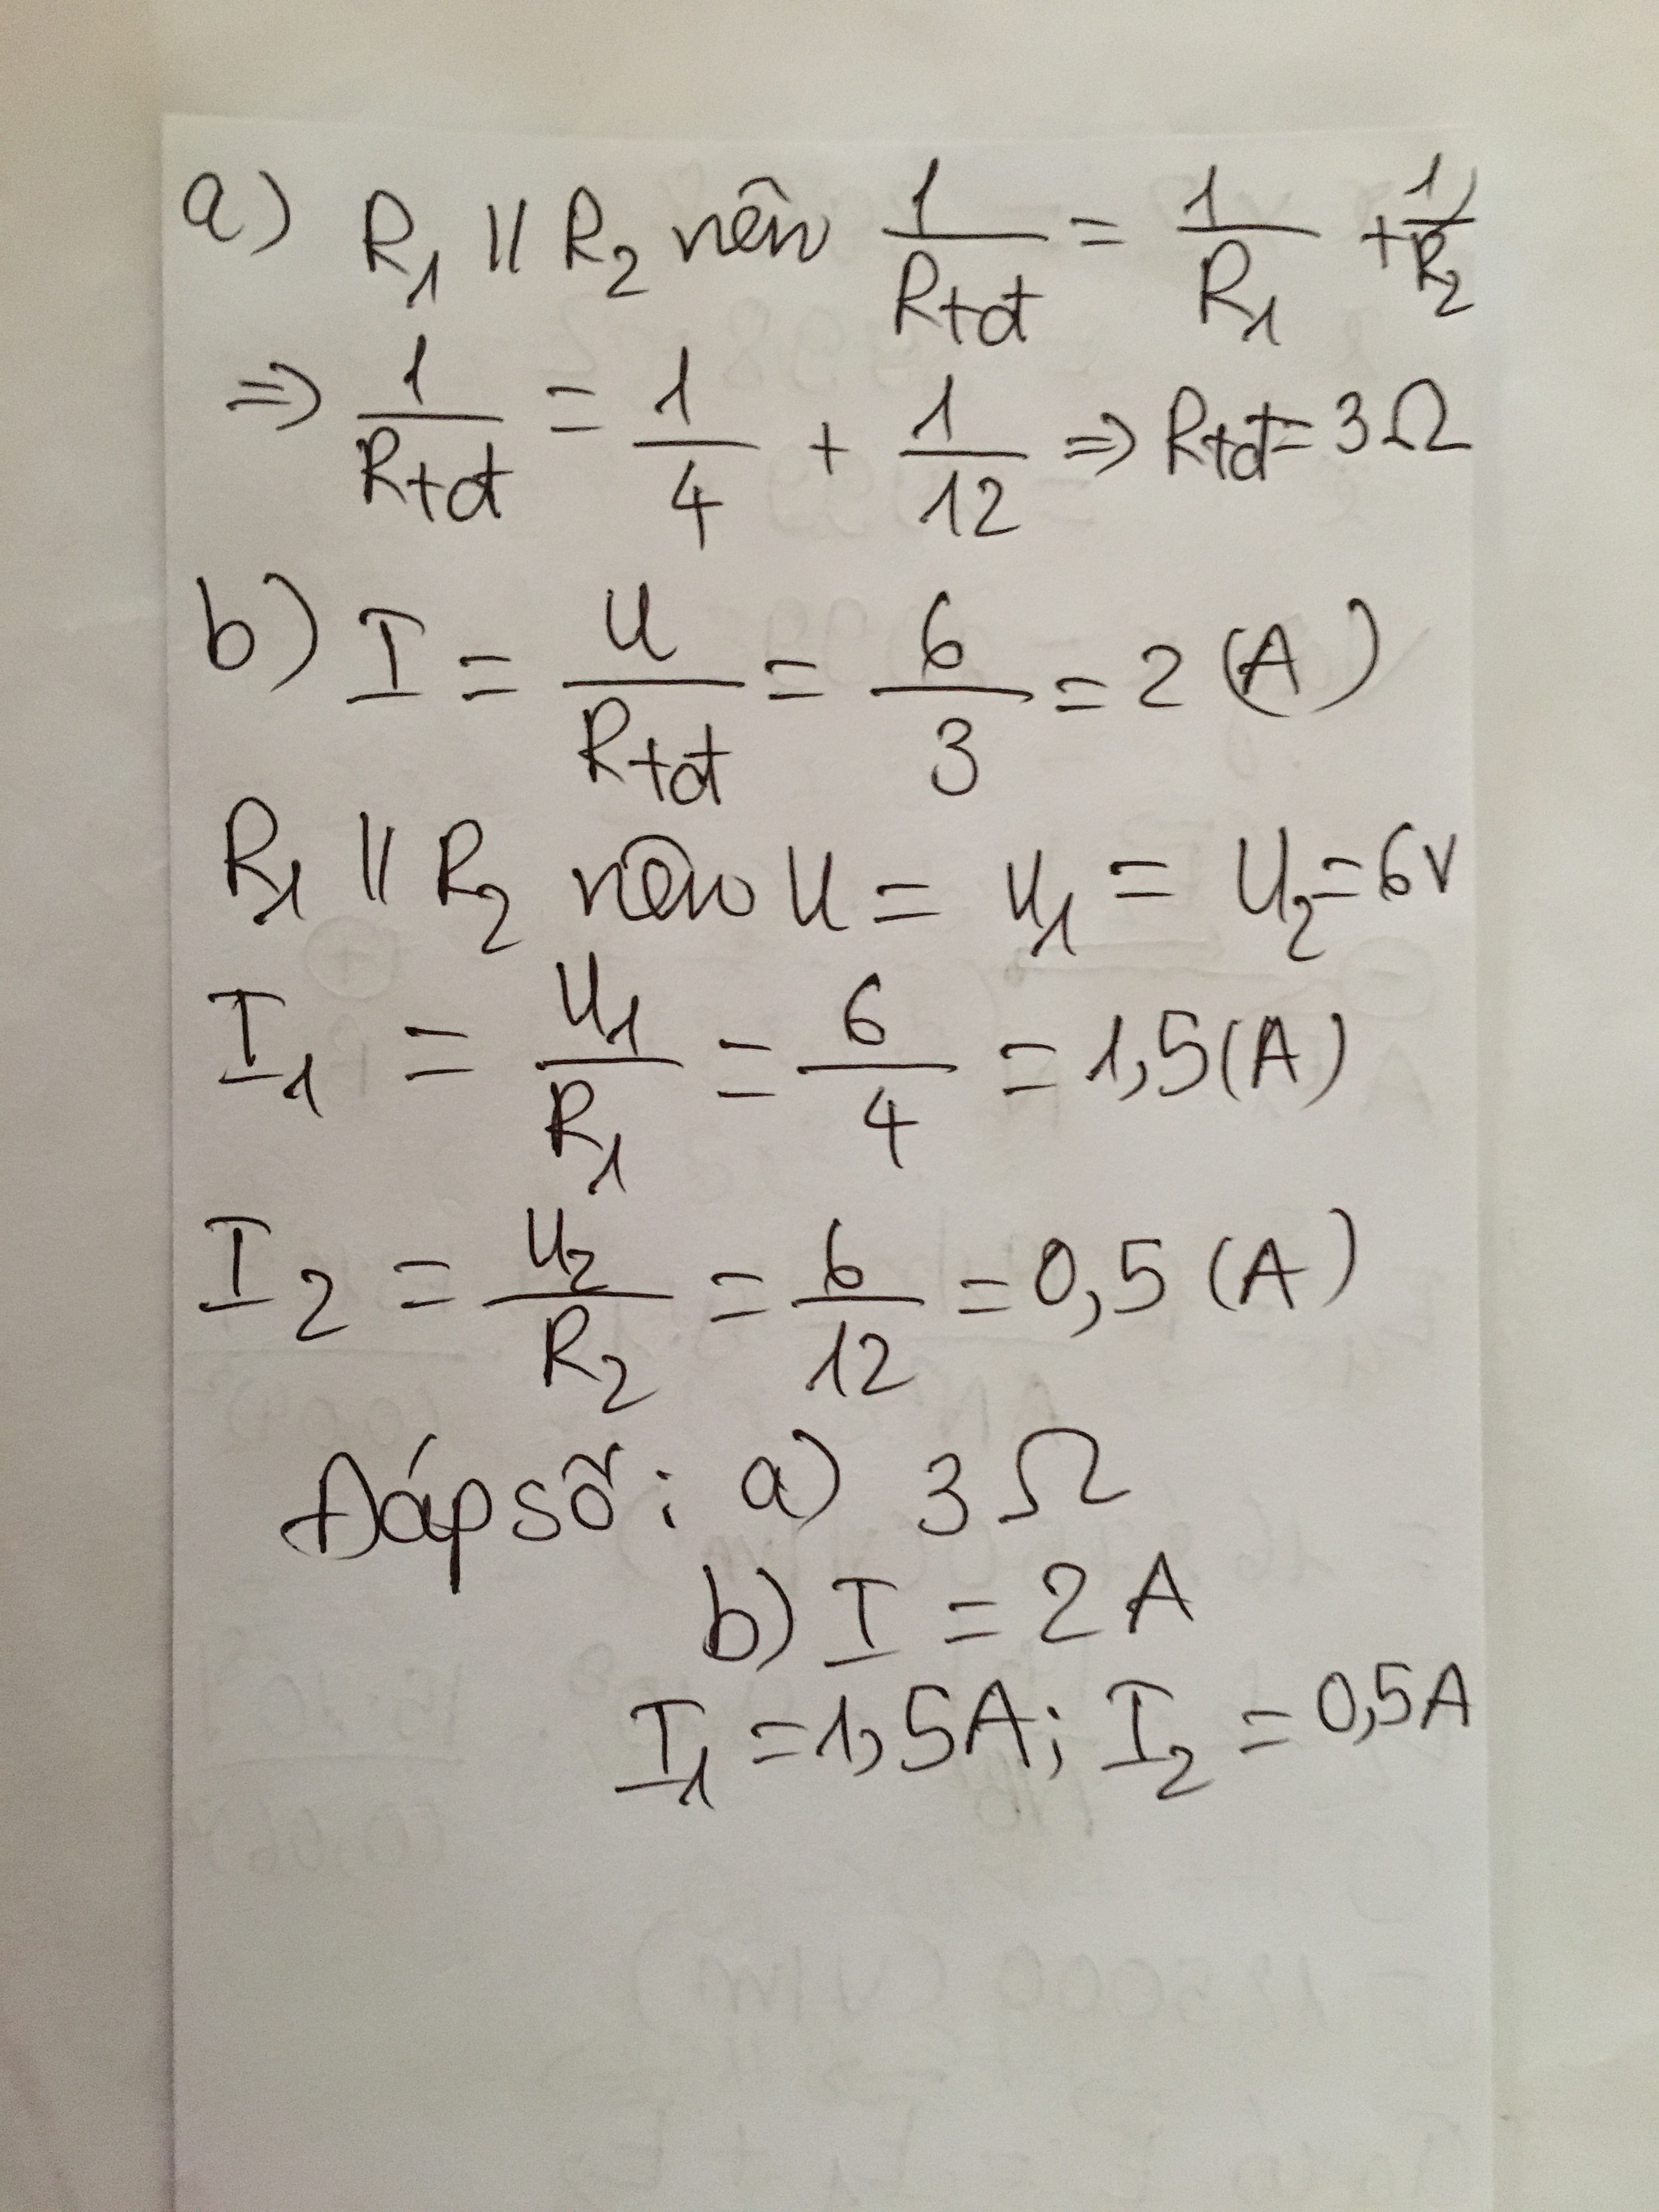 a) R₁ // R₂ nên 1/Rtđ = 1/R₁ + 1/R₂
=> 1/Rtđ = 1/4 + 1/12 => Rtđ = 3Ω
b) I = U/Rtđ = 6/3 = 2 (A)
R₁ // R₂ nên U = U₁ = U₂ = 6V
I₁ = U₁/R₁ = 6/4 = 1,5(A)
I₂ = U₂/R₂ = 6/12 = 0,5 (A)
Đáp số: a) 3Ω
b) I = 2A
I₁ = 1,5A; I₂ = 0,5A